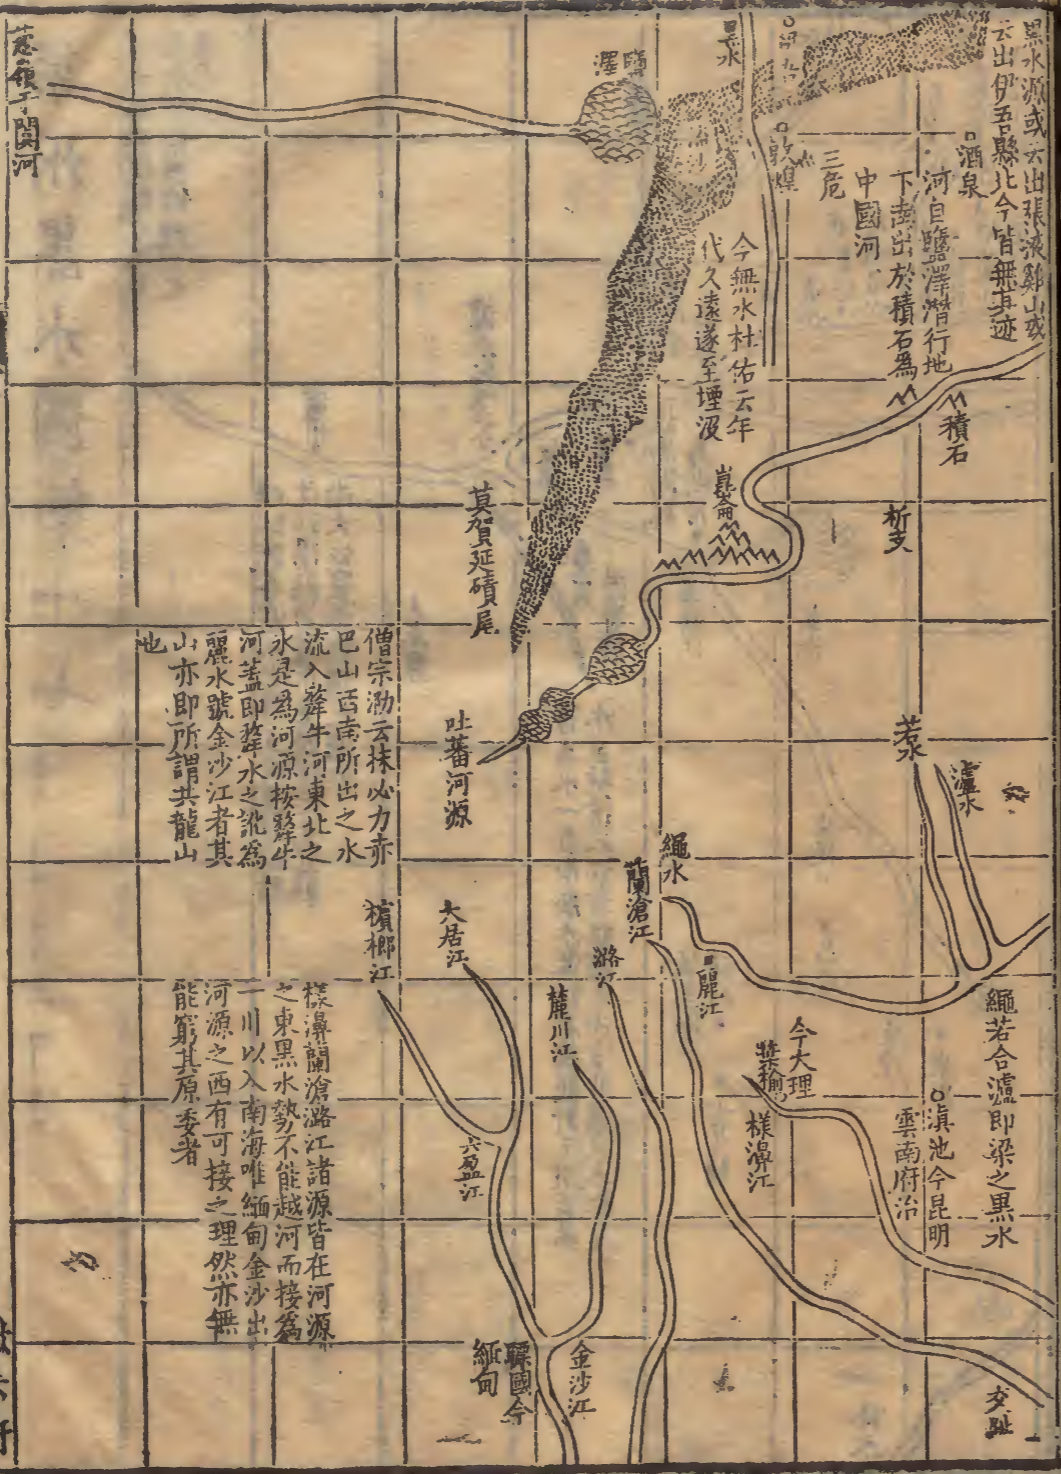 黑水源或云出張液雞山或
云出伊吾縣北今皆無其迹
酒泉
河自鹽澤潛行地
下南出於積石為
中國河
三危
敦煌
黑水
今無水杜佑云年
代久遠遂至堙沒
鹽
澤
流沙
蔥嶺于闐河
積石
析支
崑崙
莫賀延磧尾
吐蕃河源
僧宗泐云抹必力赤
巴山西南所出之水
流入犛牛河東北之
水是為河源按犛牛
河蓋即犛水之訛為
麗水號金沙江者其
山亦即所謂共龍山
也
若水
瀘水
繩水
蘭滄江
麗江
潞江
麓川江
大居江
檳榔江
繩若合瀘即梁之黑水
滇池今昆明
雲南府治
今大理
葉榆
樣濞江
大盈江
樣濞蘭滄潞江諸源皆在河源
之東黑水勢不能越河而接為
一川以入南海唯緬甸金沙出
河源之西有可接之理然亦無
能窮其原委者
金沙江
驃國今
緬甸
交趾